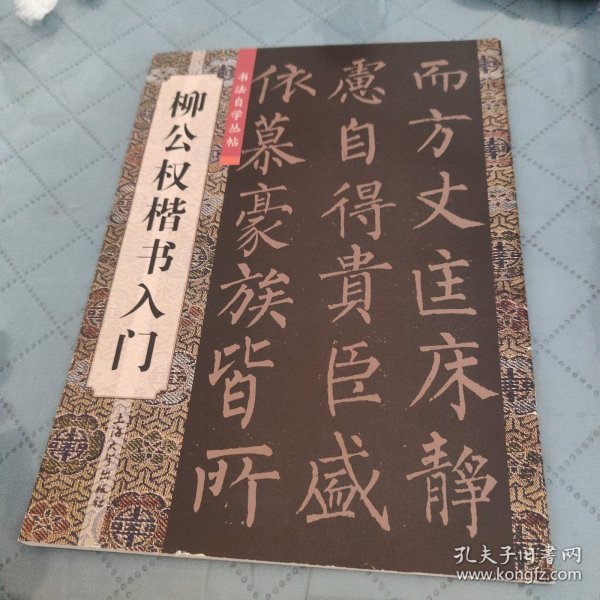 书法自学丛帖
柳公权楷书入门
而方丈匡床静
慮自得貴臣盛
依慕豪族皆所
孔夫子旧書网
www.kongfz.com